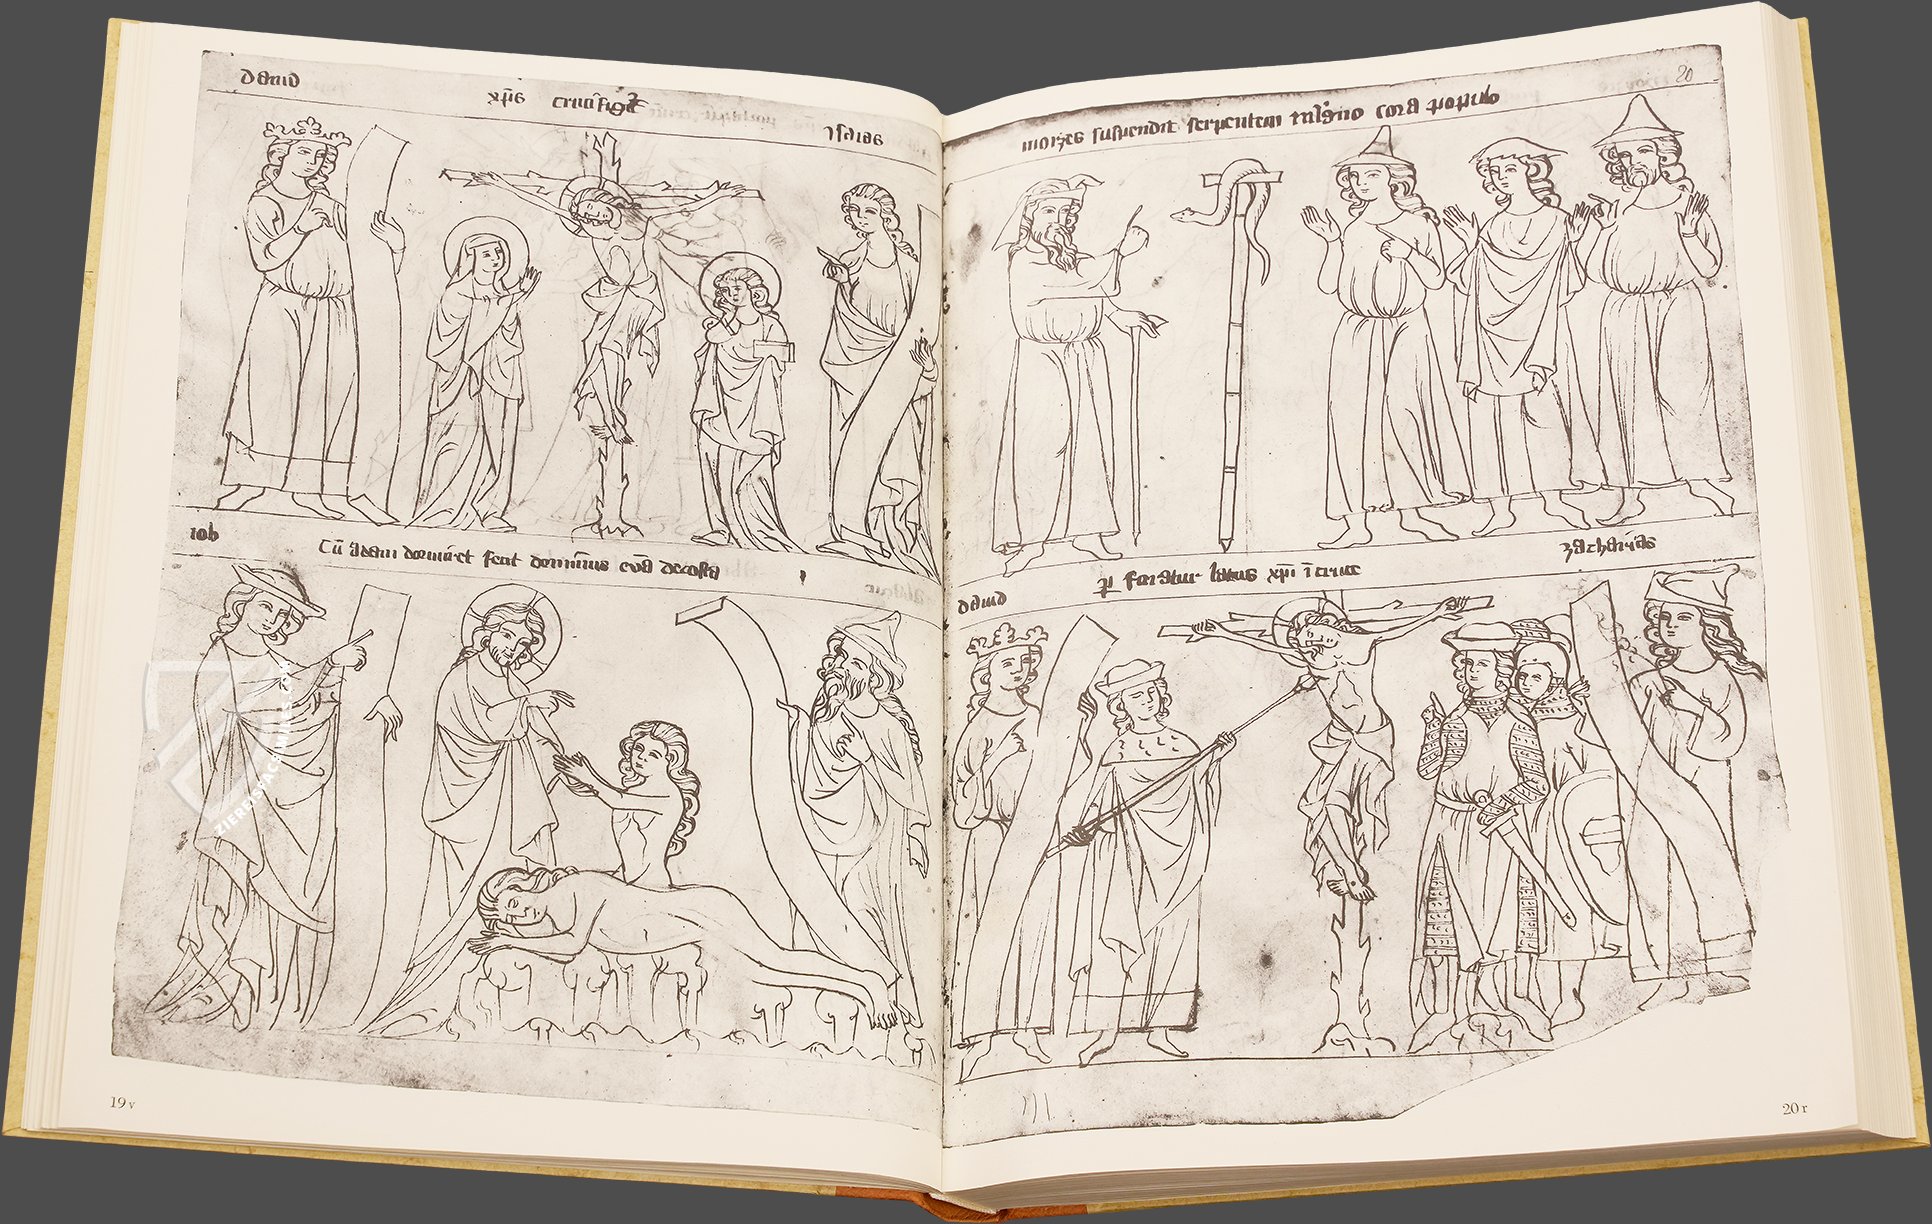 dauid
xp̄s crucifigit᷑
ysaias
iob
Cū adam dormiret fecit dominus euā decosta
19v
20
moyses suspendit serpentem in ligno corā populo
zacharias
dauid
p̄foratur latus xpī ī cruce
20r
ZIEREISFACSIMILES.COM